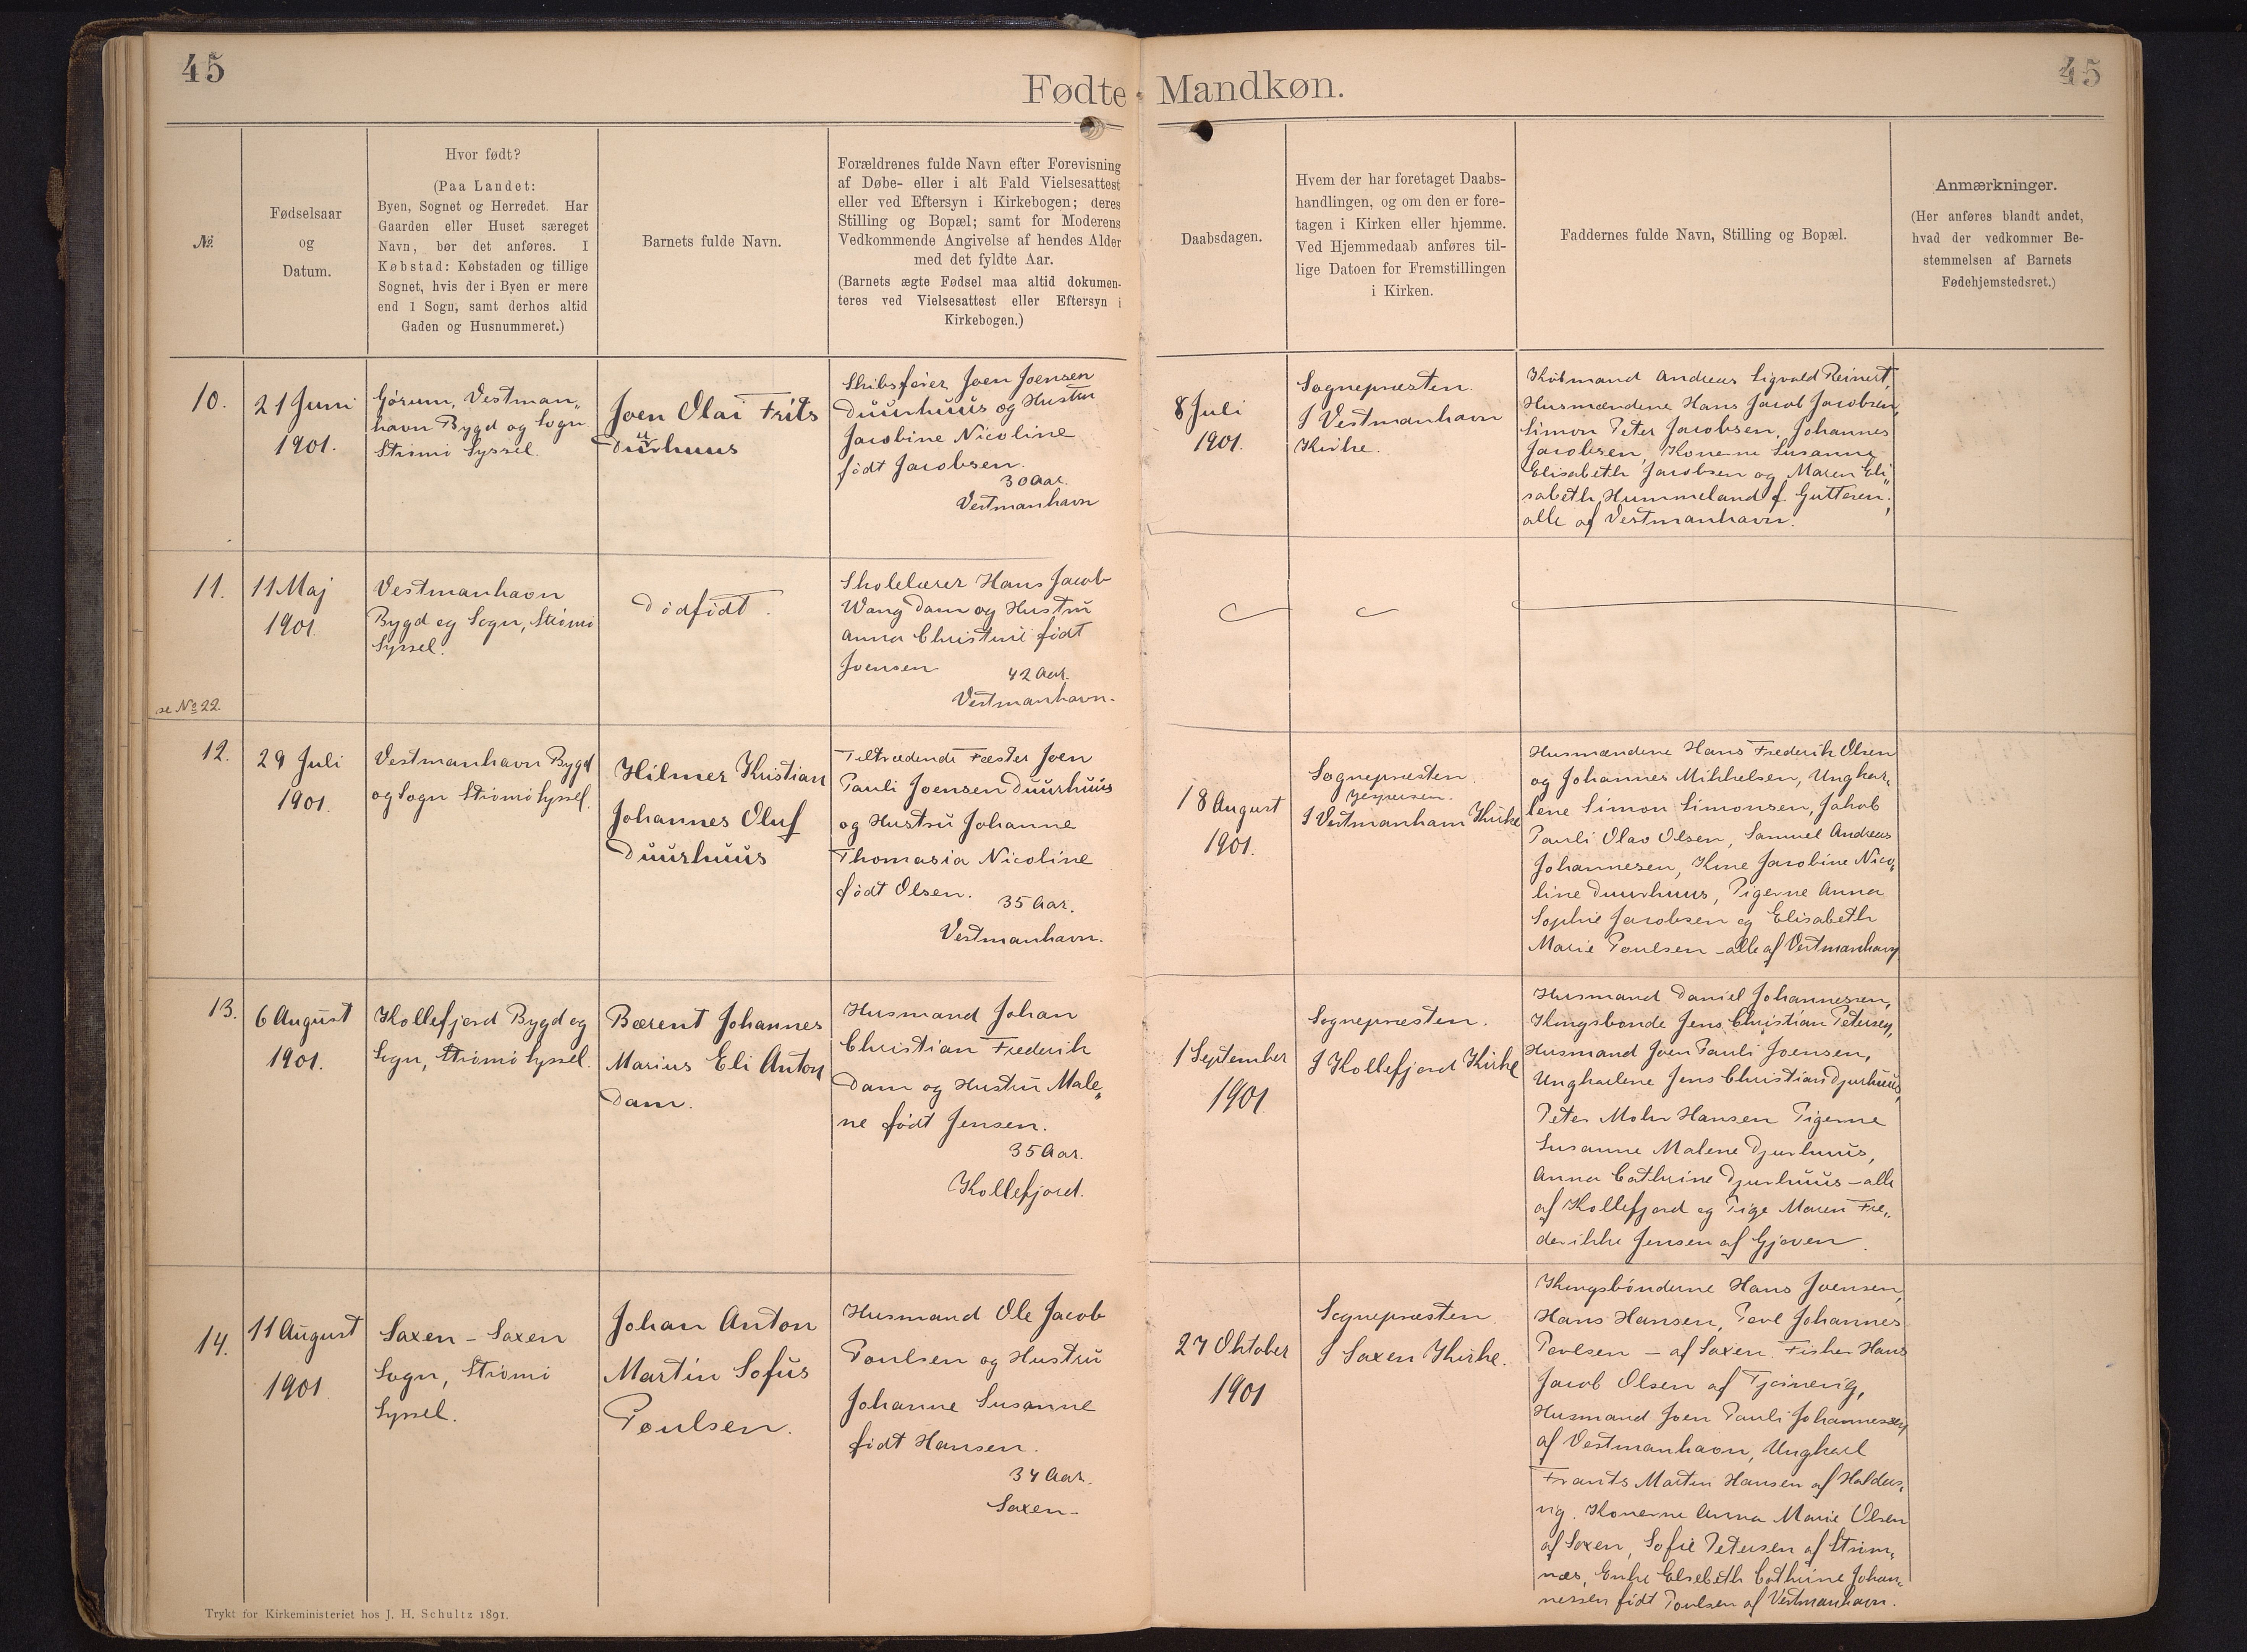 45
45
Fødte Mandkøn.
№.
Fødselsaar
og
Datum.
Hvor født?
(Paa Landet:
Byen, Sognet og Herredet. Har
Gaarden eller Huset særeget
Navn, bør det anføres. I
Købstad: Købstaden og tillige
Sognet, hvis der i Byen er mere
end 1 Sogn, samt derhos altid
Gaden og Husnummeret.)
Barnets fulde Navn.
Forældrenes fulde Navn efter Forevisning
af Døbe- eller i alt Fald Vielsesattest
eller ved Eftersyn i Kirkebogen; deres
Stilling og Bopæl; samt for Moderens
Vedkommende Angivelse af hendes Alder
med det fyldte Aar.
(Barnets ægte Fødsel maa altid dokumen-
teres ved Vielsesattest eller Eftersyn i
Kirkebogen.)
Daabsdagen.
Hvem der har foretaget Daabs-
handlingen, og om den er fore-
tagen i Kirken eller hjemme.
Ved Hjemmedaab anføres til-
lige Datoen for Fremstillingen
i Kirken.
Faddernes fulde Navn, Stilling og Bopæl.
Anmærkninger.
(Her anføres blandt andet,
hvad der vedkommer Be-
stemmelsen af Barnets
Fødehjemstedsret.)
10.
21 Juni
1901.
Görum, Vestman„
havn Bygd og Sogn
Strömö Syssel.
Joen Olai Frits
Duurhuus
Skibsfører Joen Joensen
Duurhuus og Hustru
Jacobine Nicoline
født Jacobsen.
30 Aar.
Vestmanhavn
8 Juli
1901.
Sognepræsten.
I Vestmanhavn
Kirke.
Kjöbmand Andreas Sigvald Reinert,
Husmændene Hans Jacob Jacobsen,
Simon Peter Jacobsen, Johannes
Jacobsen, Konerne Susanne
Elisabeth Jacobsen og Maren Eli„
sabeth Hummeland f. Guttesen;
alle af Vestmanhavn.
11.
11 Maj
1901.
Vestmanhavn
Bygd og Sogn, Strömö
Syssel.
Dødfødt.
Skolelærer Hans Jacob
Wang Dam og Hustru
Anna Christine født
Joensen
42 Aar.
Vestmanhavn.
se No 22.
12.
29 Juli
1901.
Vestmanhavn Bygd
og Sogn Strömö Syssel.
Hilmer Kristian
Johannes Oluf
Duurhuus
Tiltrædende Fæster Joen
Pauli Joensen Duurhuus
og Hustru Johanne
Thomasia Nicoline
født Olsen.
35 Aar.
Vestmanhavn.
18 August
1901.
Sognepræsten.
Jespersen.
I Vestmanhavn Kirke
Husmændene Hans Frederik Olsen
og Johannes Mikkelsen, Ungkar„
lene Simon Simonsen, Jakob
Pauli Olav Olsen, Samuel Andreas
Johannesen, Kone Jacobine Nico„
line Duurhuus, Pigerne Anna
Sophie Jacobsen og Elisabeth
Marie Poulsen - alle af Vestmanhavn
13.
6 August
1901.
Kollefjord Bygd og
Sogn, Strömö Syssel.
Bærent Johannes
Marius Eli Anton
Dam.
Husmand Johan
Christian Frederik
Dam og Hustru Male„
ne født Jensen.
35 Aar.
Kollefjord.
1 September
1901.
Sognepræsten.
I Kollefjord Kirke
Husmand Daniel Johannessen,
Kongsbonde Jens Christian Petersen,
Husmand Joen Pauli Joensen,
Ungkarlene Jens Christian Djurhuus,
Peter Mohr Hansen Pigerne
Susanne Malene Djurhuus,
Anna Cathrine Djurhuus - alle
af Kollefjord og Pige Maren Fre„
derikke Jensen af Gjoven.
14.
11 August
1901.
Saxen - Saxen
Sogn, Strömö
Syssel.
Johan Anton
Martin Sofus
Poulsen.
Husmand Ole Jacob
Poulsen og Hustru
Johanne Susanne
født Hansen.
34 Aar.
Saxen -
27 Oktober
1901
Sognepræsten.
I Saxen Kirke.
Kongsbönderne Hans Joensen,
Hans Hansen, Povl Johannes
Povlsen - af Saxen. Fisker Hans
Jacob Olsen af Tjörnevig,
Husmand Joen Pauli Johannessen
af Vestmanhavn, Ungkarl
Frants Martin Hansen af Haldus„
vig. Konerne Anna Marie Olsen
af Saxen, Sofie Petersen af Ström„
næs, Enke Elsebeth Cathrine Johan„
nessen født Poulsen af Vestmanhavn.
Trykt for Kirkeministeriet hos J. H. Schultz 1891.